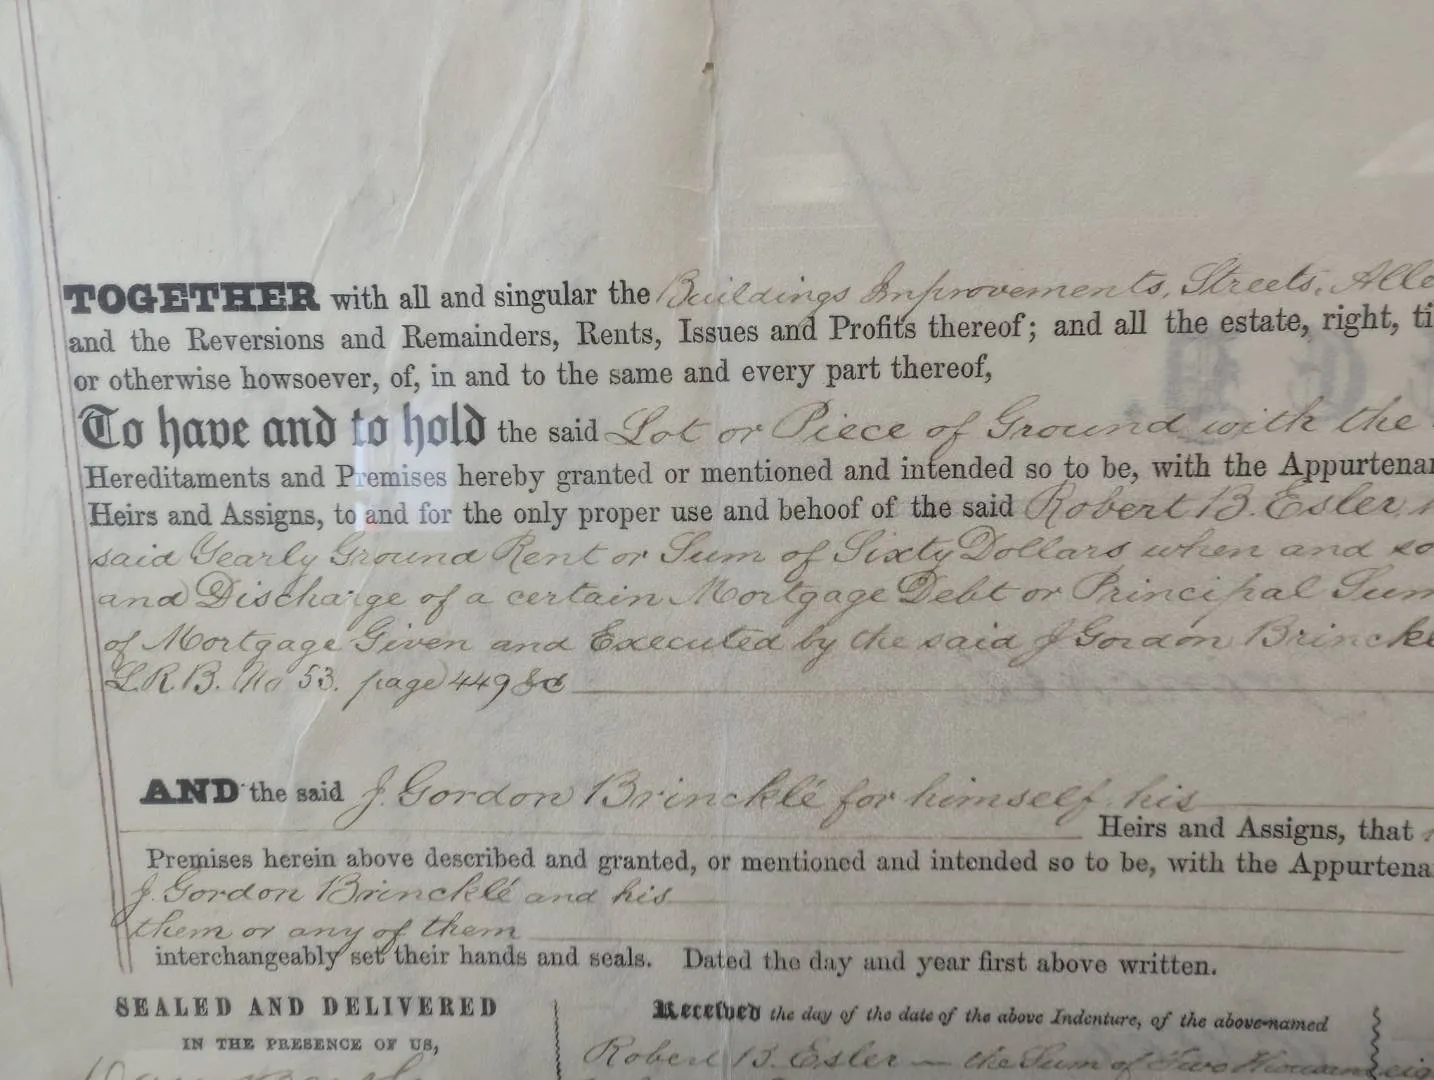 TOGETHER with all and singular the Buildings Improvements, Streets, Alle
and the Reversions and Remainders, Rents, Issues and Profits thereof; and all the estate, right, ti
or otherwise howsoever, of, in and to the same and every part thereof,
To have and to hold the said Lot or Piece of Ground with the
Hereditaments and Premises hereby granted or mentioned and intended so to be, with the Appurtenan
Heirs and Assigns, to and for the only proper use and behoof of the said Robert B. Esler
said Yearly Ground Rent or Sum of Sixty Dollars when and so
and Discharge of a certain Mortgage Debt or Principal Sum
of Mortgage Given and Executed by the said J Gordon Brinckl
L.R.B. No 53. page 449 &c
AND the said J. Gordon Brincklé for himself, his
Heirs and Assigns, that
Premises herein above described and granted, or mentioned and intended so to be, with the Appurtena
J. Gordon Brincklé and his
them or any of them
interchangeably set their hands and seals. Dated the day and year first above written.
SEALED AND DELIVERED
IN THE PRESENCE OF US,
Received the day of the date of the above Indenture, of the above-named
Robert B. Esler — the Sum of Two thousand eig